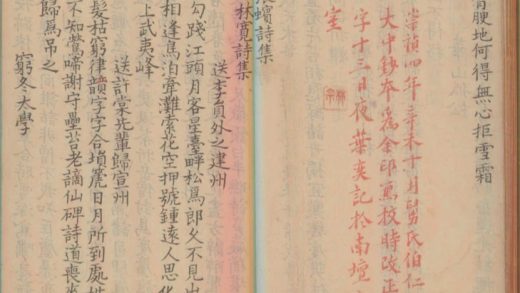 骨硬地何得無心拒雪霜
崇禎四年辛未十月舅氏伯仁
大中鈔本為余印寫校時改正
字十三日夜葉奕記於南壇
室
林寬詩集
送李員外之建州
勾踐江頭月客星臺畔松為郎久不見出
相逢為泊牽灘索花空押號鍾遠人思化
上武夷峰
送許棠先輩歸宣州
髮枯窮律韻字字合塤箎日月所到處姓
不知鶯啼謝守壘苔老謫仙碑詩道喪來
歸為吊之
窮冬太學